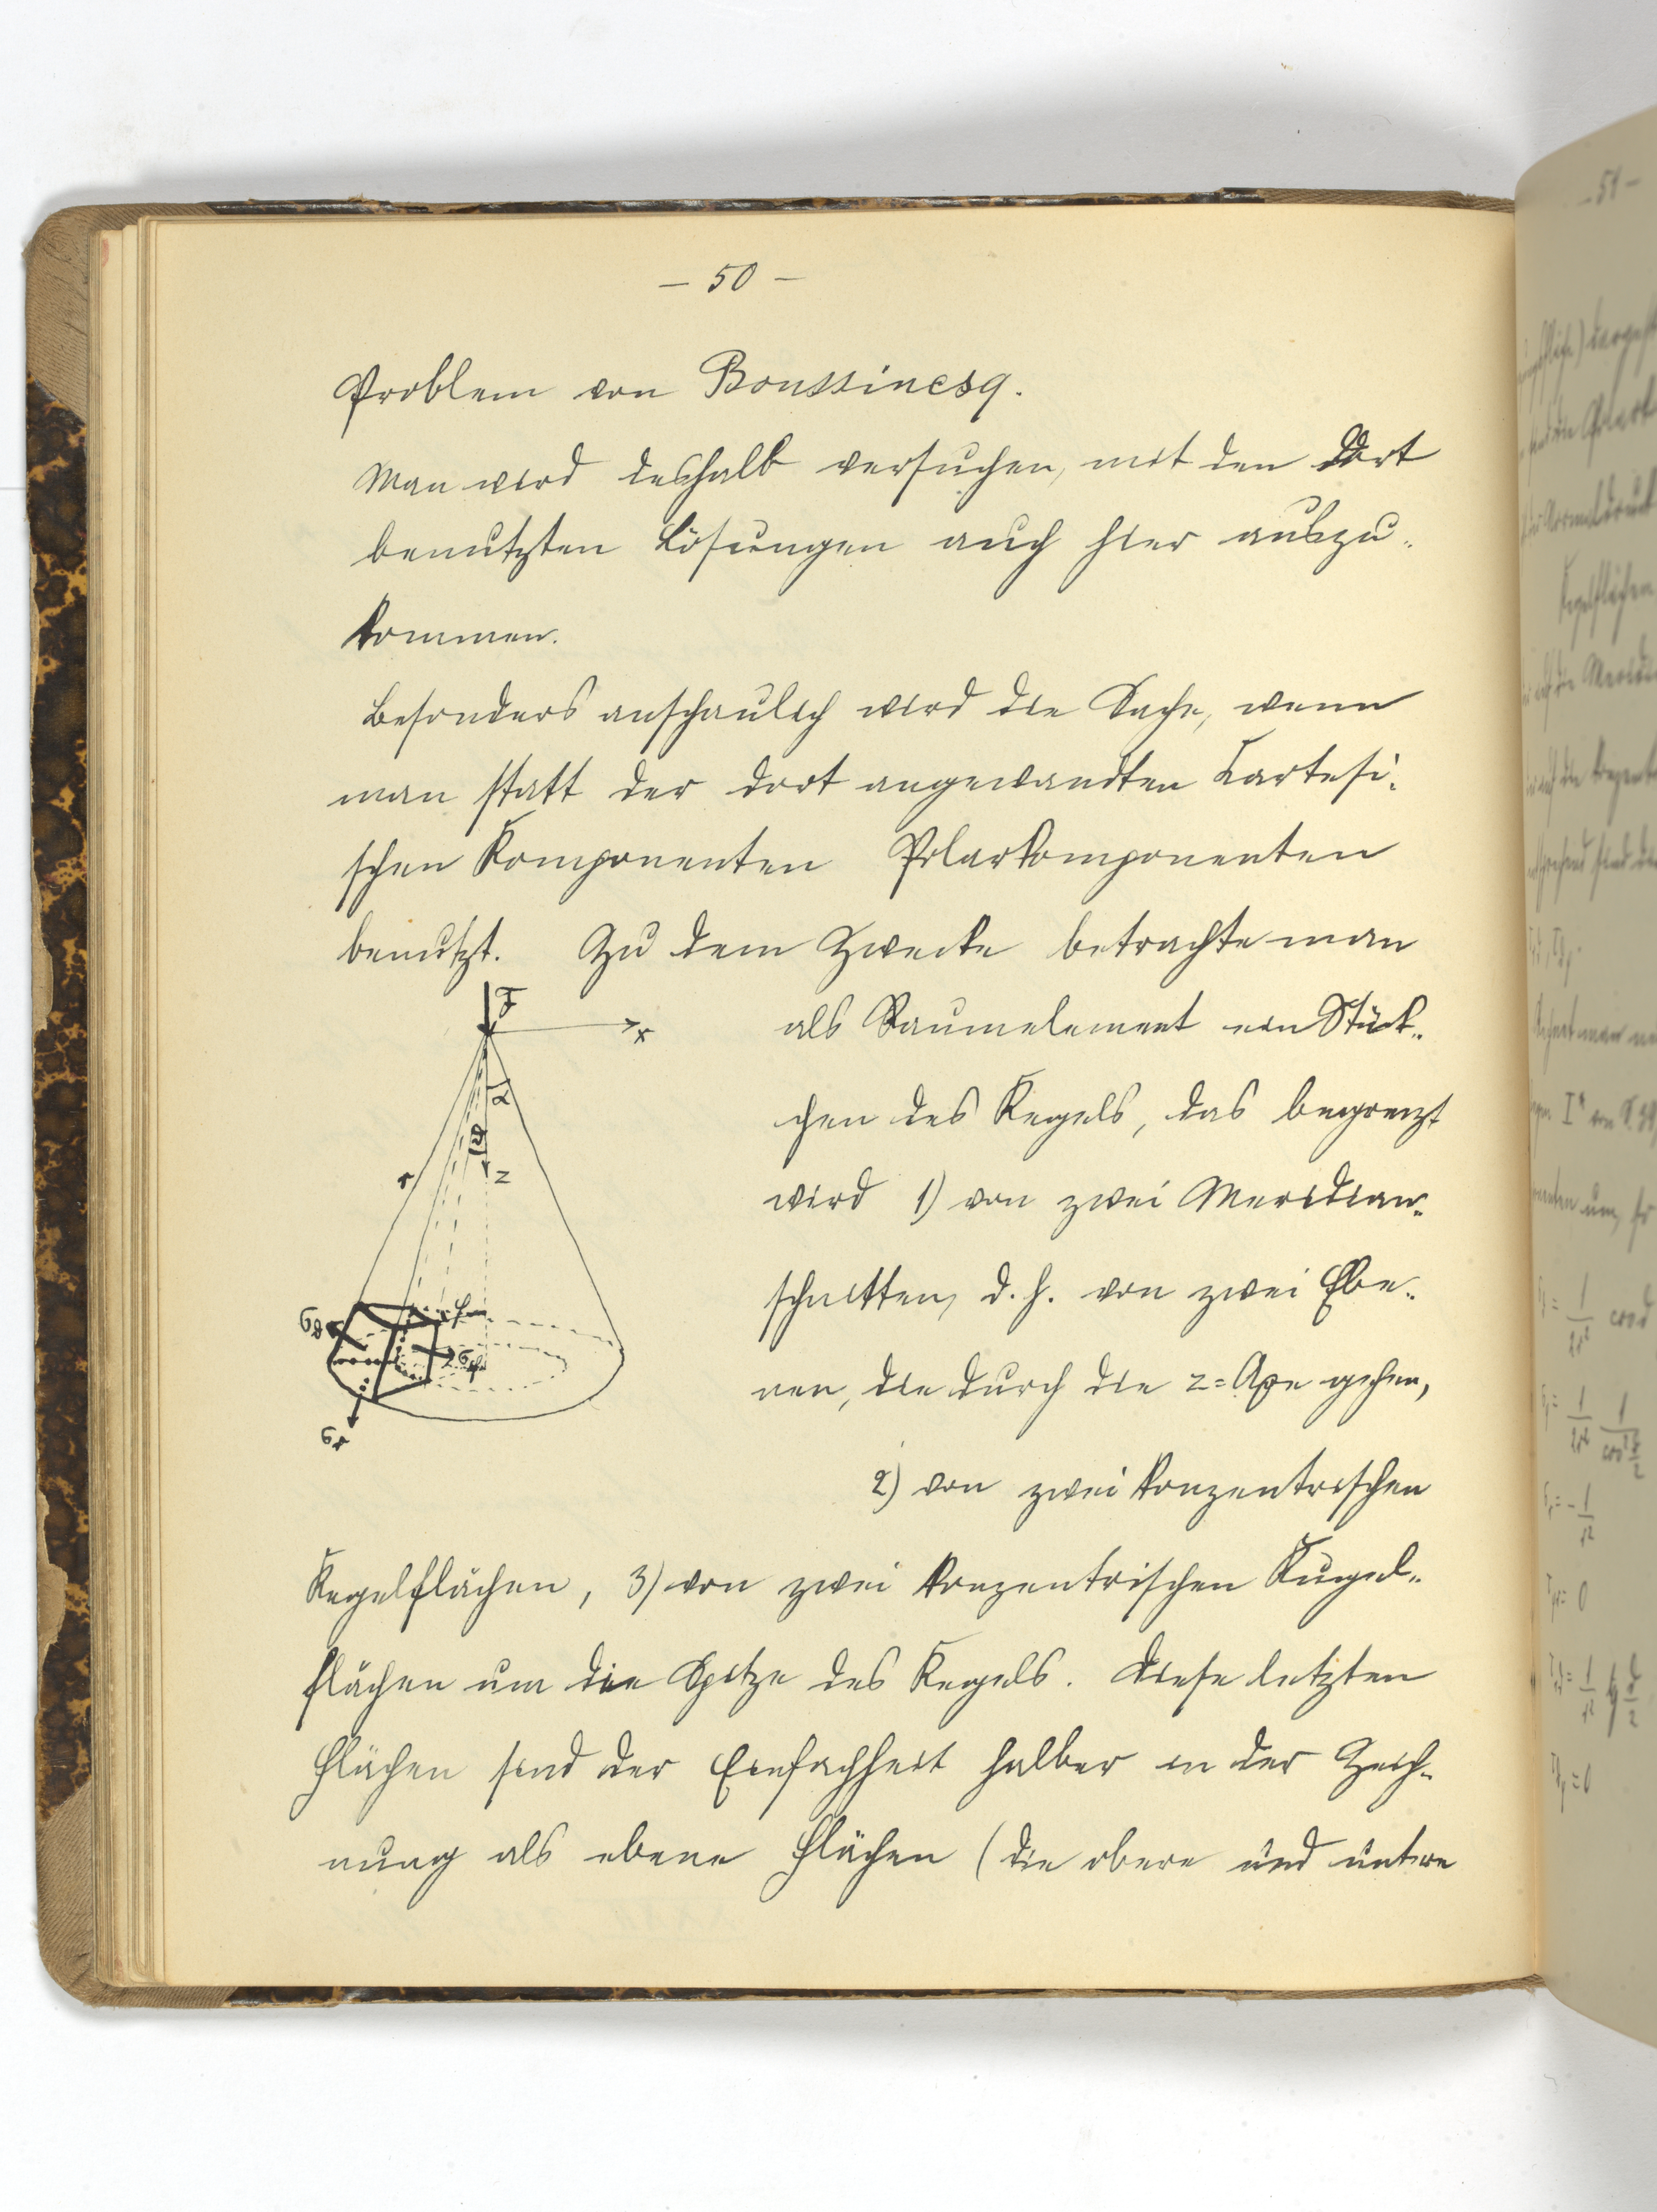 – 50 –
Problem von Boussinesq.
Man wird deshalb versuchen, mit den dort
benutzten Lösungen auch hier auszu-
kommen.
Besonders anschaulich wird die Sache, wenn
man statt der dort angewandten Cartesi-
schen Komponenten Polarkomponenten
benutzt. Zu dem Zwecke betrachte man
F
x
als Raumelement ein Stück-
α
chen des Kegels, das begrenzt
ϑ
r
z
wird 1) von zwei Meridian-
schnitten, d. h. von zwei Ebe-
σϑ
φ
σφ
nen, die durch die z=Axe gehen,
σr
2) von zwei konzentrischen
Kegelflächen, 3) von zwei konzentrischen Kugel-
flächen um die Spitze des Kegels. Diese letzten
Flächen sind der Einfachheit halber in der Zeich-
nung als ebene Flächen (die obere und untere
51 –